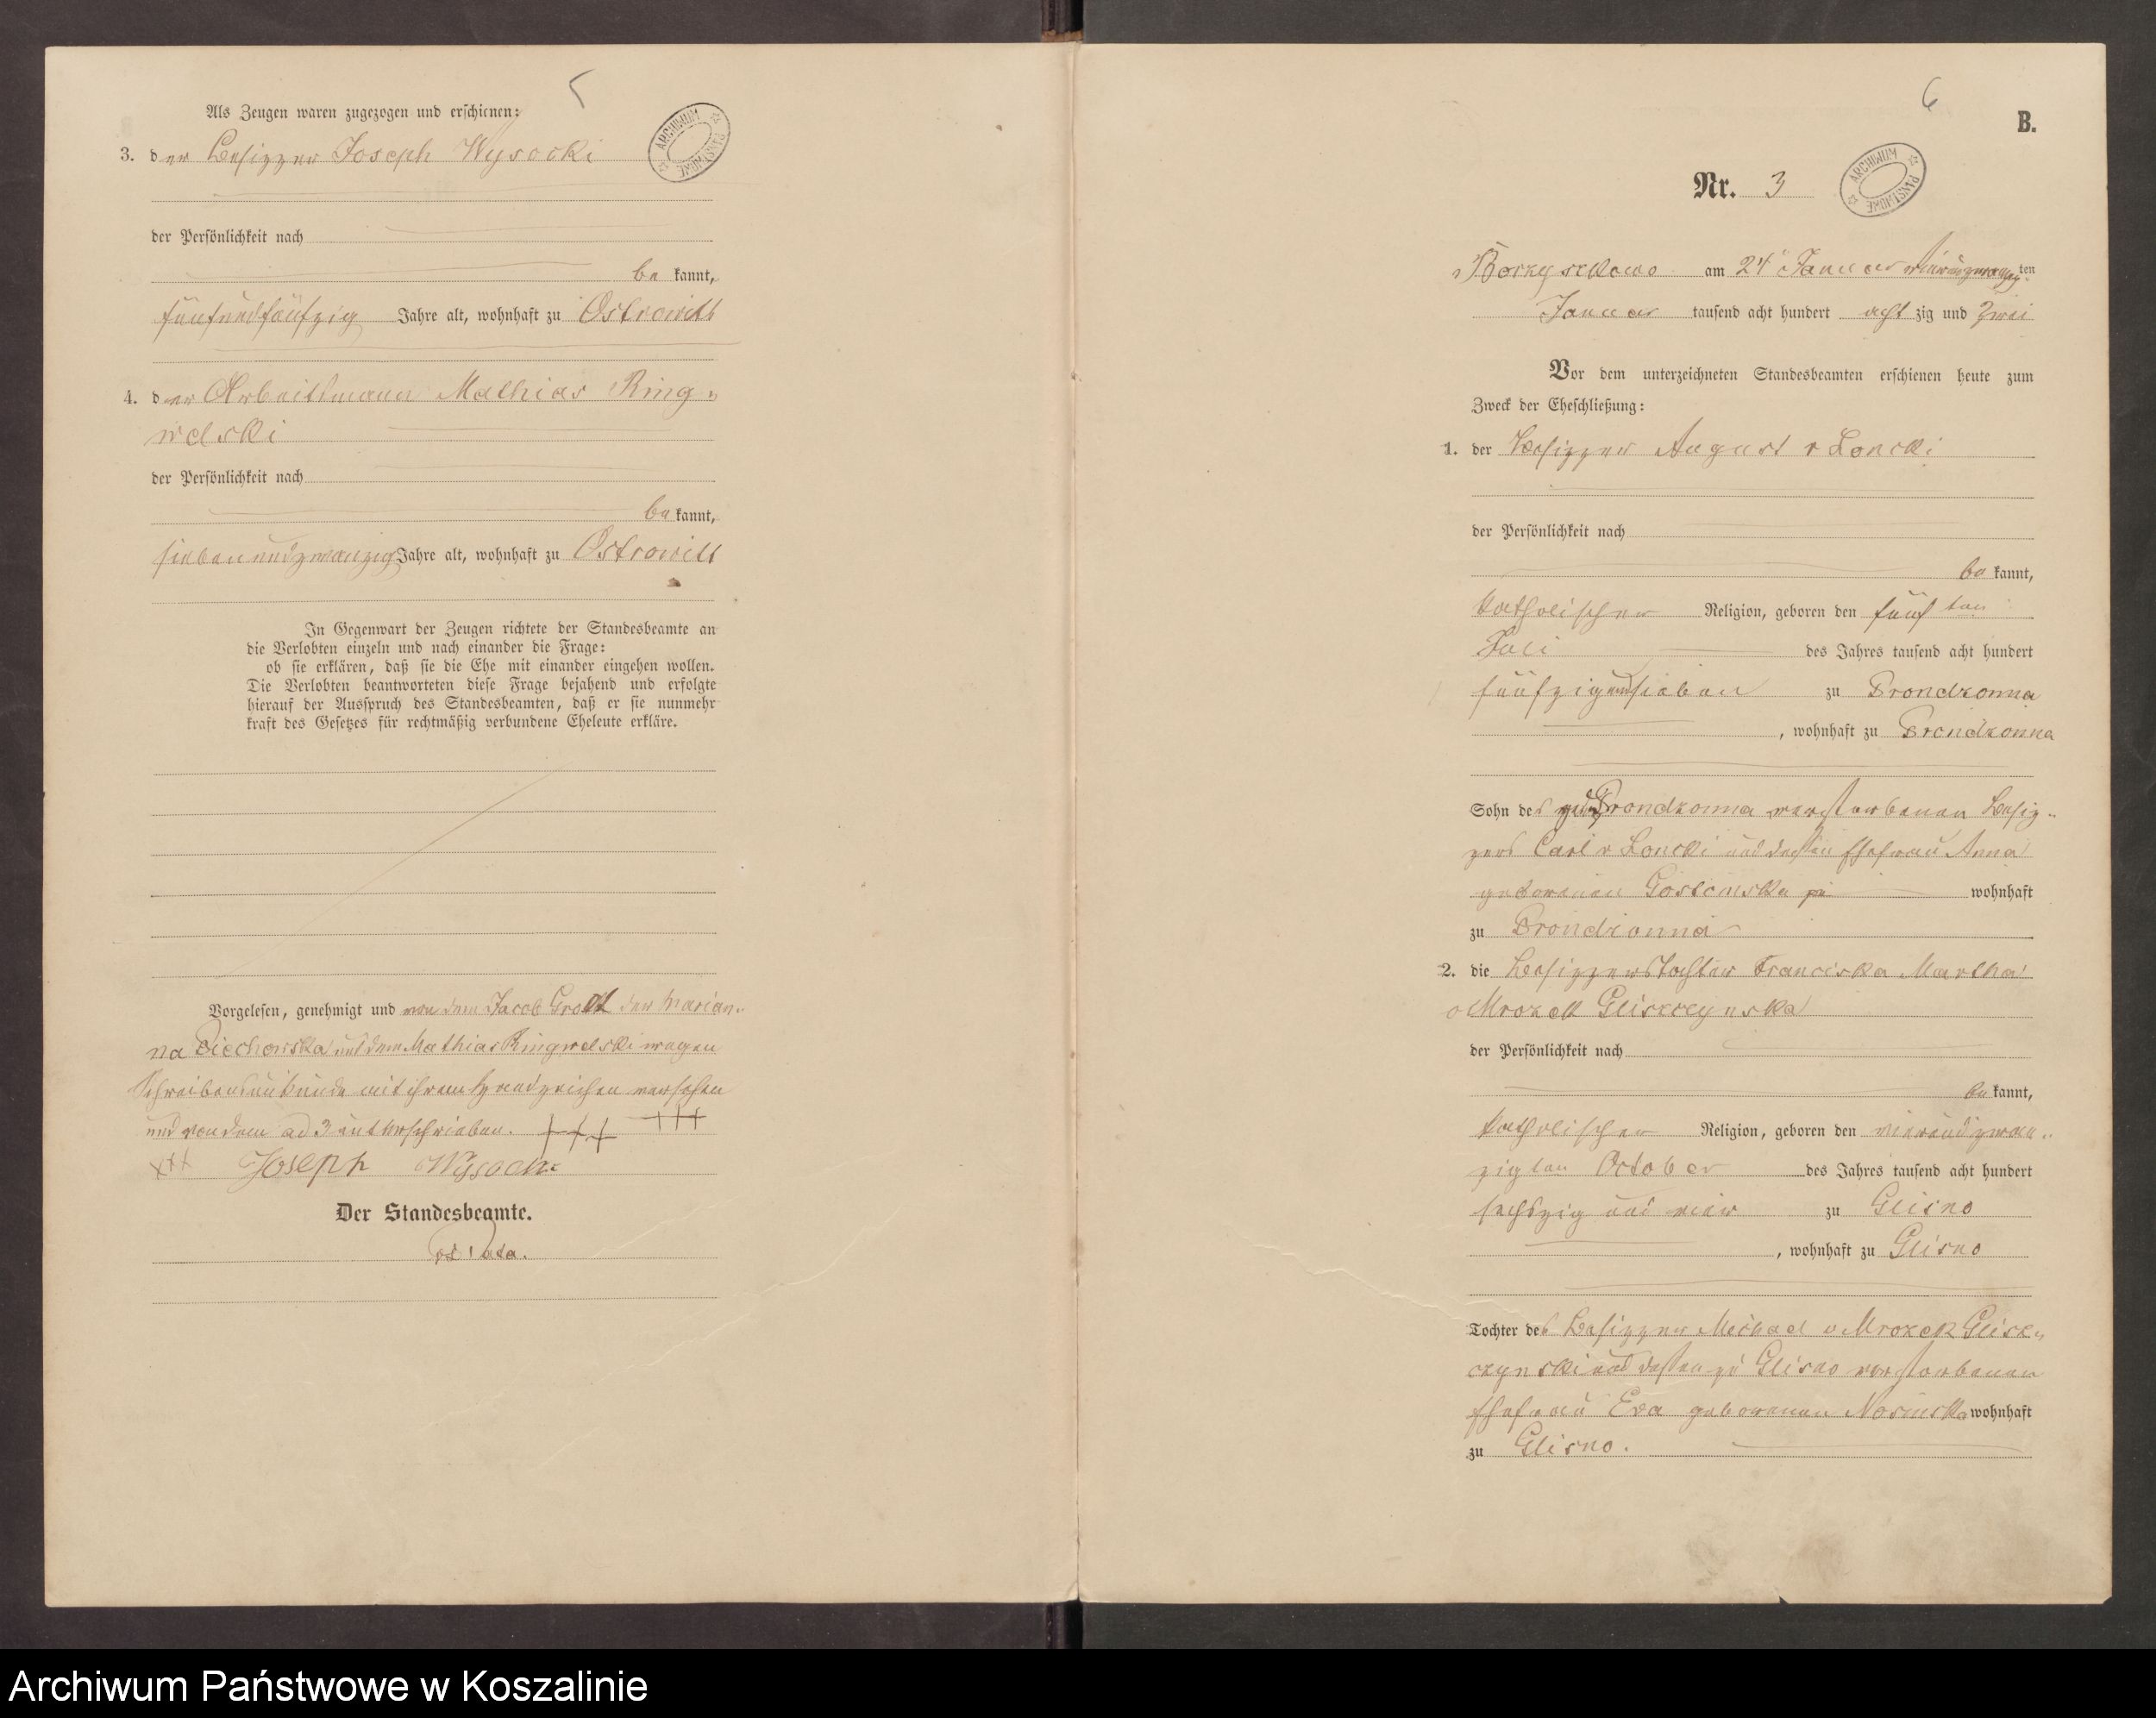 5
Als Zeugen waren zugezogen und erschienen:
ARCHIWUM PAŃSTWOWE
3. der Besitzer Joseph Wysocki
der Persönlichkeit nach
be kannt,
fünfundfünfzig Jahre alt, wohnhaft zu Ostrowitt
4. der Arbeitsmann Mathias Ring-
welski
der Persönlichkeit nach
be kannt,
siebenundzwanzig Jahre alt, wohnhaft zu Ostrowitt
In Gegenwart der Zeugen richtete der Standesbeamte an
die Verlobten einzeln und nach einander die Frage:
ob sie erklären, daß sie die Ehe mit einander eingehen wollen.
Die Verlobten beantworteten diese Frage bejahend und erfolgte
hierauf der Ausspruch des Standesbeamten, daß er sie nunmehr
kraft des Gesetzes für rechtmäßig verbundene Eheleute erkläre.
Vorgelesen, genehmigt und von dem Jacob der Marian-
na und dem Mathias Ringwelski wegen
Schreibensunkunde mit ihrem Handzeichen versehen
und von dem ad 3 unterschrieben. +++ +++
+++ Joseph Wysocki
Der Standesbeamte.
6
B.
Nr. 3
ARCHIWUM PAŃSTWOWE
Borzyszkowo am 24 Januar vierundzwanzig ten
Januar tausend acht hundert acht zig und zwei
Vor dem unterzeichneten Standesbeamten erschienen heute zum
Zweck der Eheschließung:
1. der Besitzer August v Loncki
der Persönlichkeit nach
be kannt,
katholischer Religion, geboren den fünf ten
Juli des Jahres tausend acht hundert
fünfzig und sieben zu Prondzonna
, wohnhaft zu Prondzonna
Sohn des zu Prondzonna verstorbenen Besit-
zers Carl v Loncki und dessen Ehefrau Anna
geborenen wohnhaft
zu Prondzonna
2. die Besitzerstochter Franciska Martha
v Mrozek Gliszczynska
der Persönlichkeit nach
be kannt,
katholischer Religion, geboren den vierundzwan-
zigten October des Jahres tausend acht hundert
sechszig und vier zu Glisno
, wohnhaft zu Glisno
Tochter des Besitzer Michael v Mrozek Glisz-
czynski und dessen zu Glisno verstorbenen
Ehefrau Eva geborenen wohnhaft
zu Glisno.
Archiwum Państwowe w Koszalinie